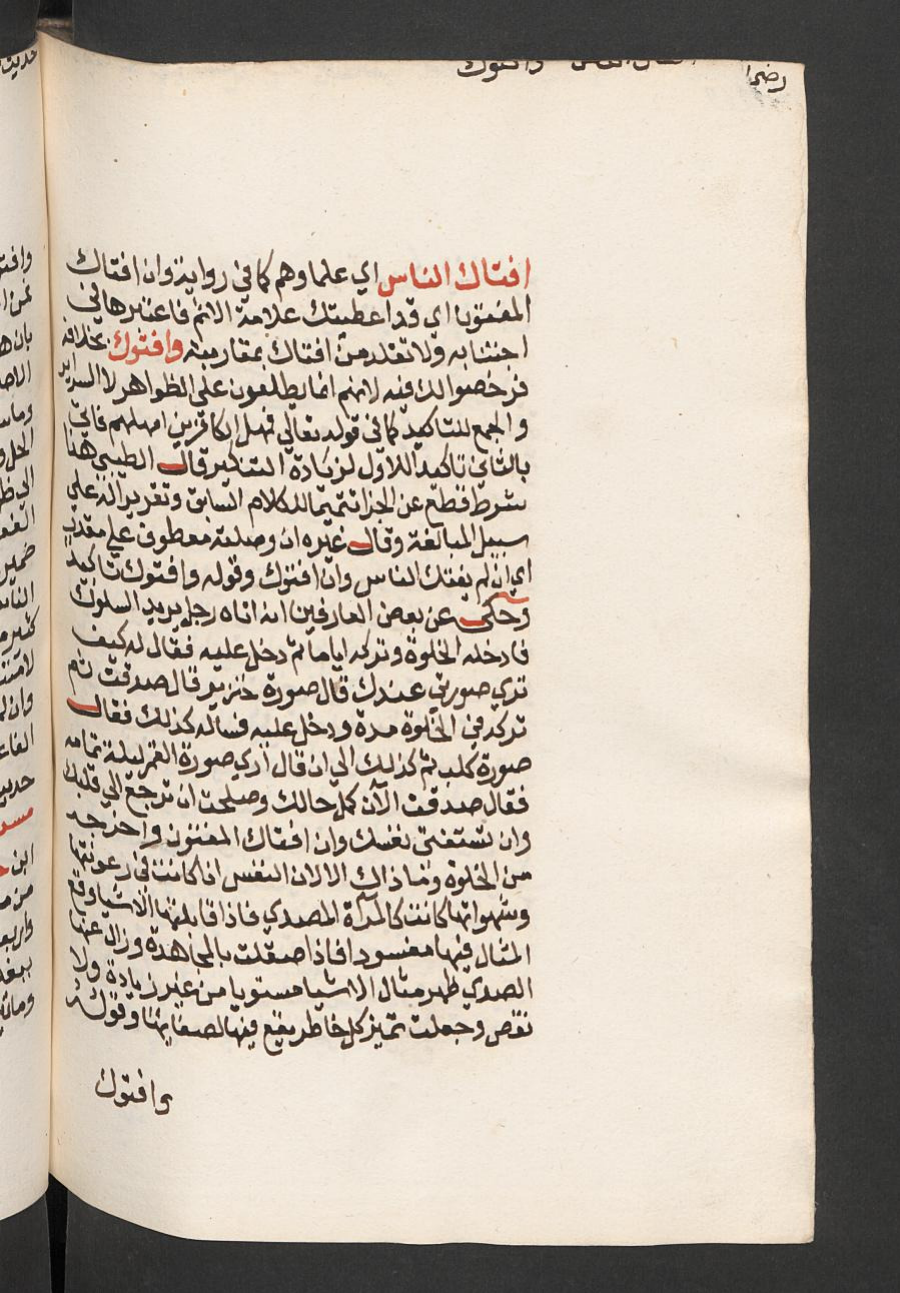 افتاك الناس اي علماوهم كما في رواية وان افتاك
المفتون اي قد اعطيتك علامة الاثم فاعتبرها في
اجتنابه ولا تقلد من افتاك بمقاربته وافتوك بخلافه
فرخصوا لك فيه لانهم انما يطلعون علي الظواهر لا السراير
والجمع للتاكيد كما في قوله تعالي فمهل الكافرين امهلهم فاتي
بالثاني تاكيدا للاول لزيادة التنكير قال الطيبي هذا
شرط قطع عن الجزا تتميما للكلام السابق وتقريرا له علي
سبيل المبالغة وقال غيره ان وصلية معطوف علي مقدر
اي ان لم يفتك الناس وان افتوك وقوله وافتوك تاكيد
وحكي عن بعض العارفين انه اتاه رجل يريد السلوك
فادخله الخلوة وتركه اياما ثم دخل عليه فقال له كيف
تري صورتي عندك قال صورة خنزير قال صدقت ثم
تركه في الخلوة مدة ودخل عليه فساله كذلك فقال
صورة كلب ثم كذلك الي ان قال اري صورة القمر ليلة تمامه
فقال صدقت الآن كمل حالك وصلحت ان ترجع الي قلبك
وان تستفتي نفسك وان افتاك المفتون واخرجه
من الخلوة وما ذاك الا لان النفس اذا كانت في رعونتها
وشهواتها كانت كالمرآة المصدي فاذا قابلتها الاشيا وقع
المثال فيها مفسودا فاذا صقلت بالمجاهدة وزال عنها
الصدي ظهر مثال الاشيا مستويا من غير زيادة ولا
نقص وجعلت تميز كل خاطر يقع فيها لصفايها وقوله
وافتوك